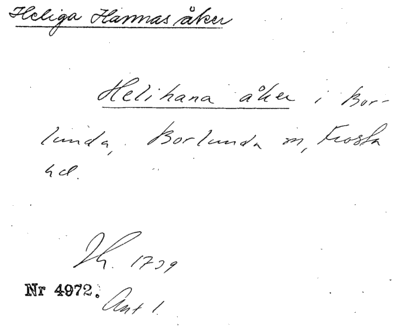 Heliga Hannas åker
Helihana åker i Bor-
lunda, Borlunda sn, Frosta
hd.
Jh. 1739
Nr 4972.
Ant 1.